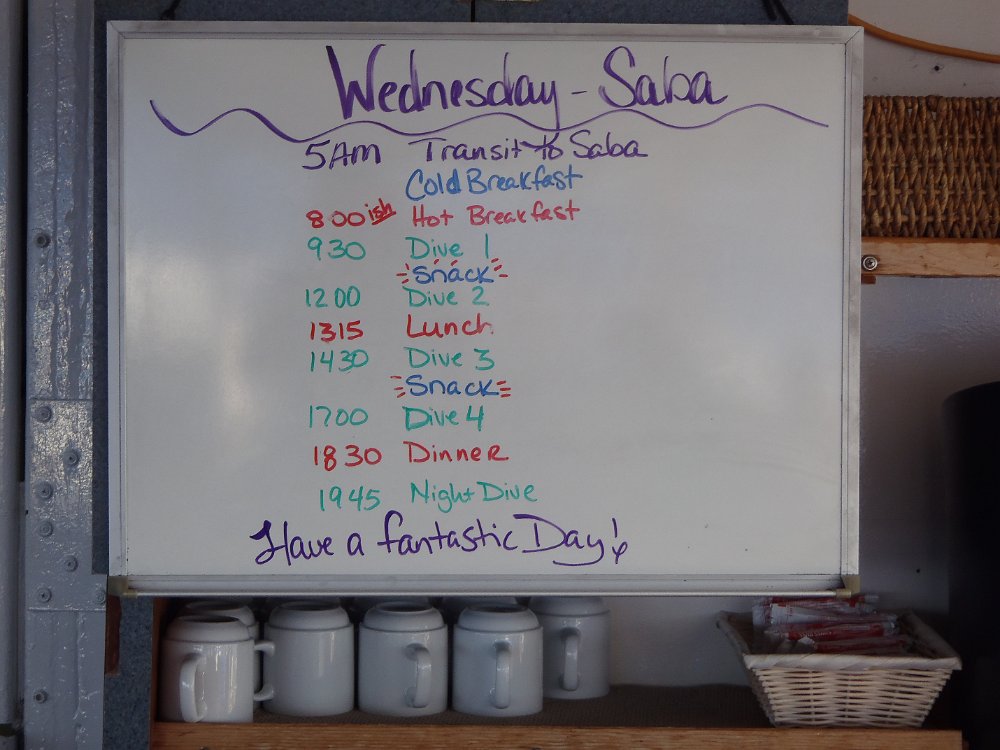 Wednesday - Saba
5AM Transit to Saba
Cold Breakfast
800ish Hot Breakfast
930 Dive 1
Snack
1200 Dive 2
1315 Lunch
1430 Dive 3
Snack
1700 Dive 4
1830 Dinner
1945 Night Dive
Have a fantastic Day!